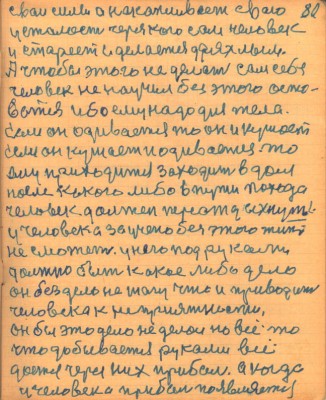 свои силы а накапливает свою 82
усталость через кого сам человек
и стареет и делается дряхлым.
А чтобы этого не делать сам себя
человек не научил без этого осто-
ватся ибо ему надо для тела.
Если он одивается то он и кушает
если он кушает и одивается то
ему приходится заходить в дом
после какого либо в пути похода
человек должен перотдыхнуть
у человека заучено без этого жить
не сможет. у него под руками
должно быть какое либо дело
он без дела не шагу что и приводит
человека к неприятности,
он бы это дело не делал но всё то
что добывается руками всё
дается через них прибыл. а когда
у человека прибыл появляется